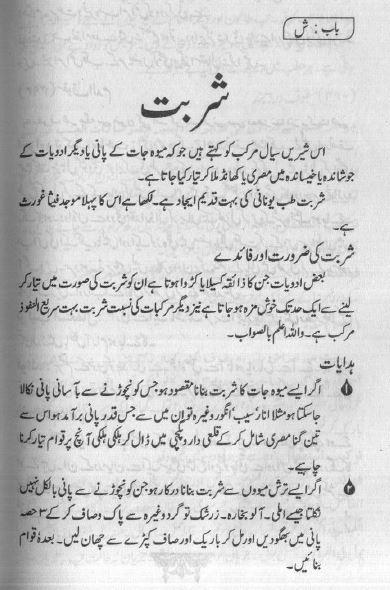 باب : ش
شربت
اس شیریں سیال مرکب کو کہتے ہیں جو کہ میوہ جات کے پانی یا دیگر ادویات کے
جوشاندہ یا خیساندہ میں مصری یا کھانڈ ملا کر تیار کیا جاتا ہے۔
شربت طب یونانی کی بہت قدیم ایجاد ہے۔ لکھا ہے اس کا پہلا موجد فیثا غورث
ہے۔
شربت کی ضرورت اور فائدے
بعض ادویات جن کا ذائقہ کسیلا یا کڑوا ہوتا ہے ان کو شربت کی صورت میں تیار کر
لینے سے ایک حد تک خوش مزہ ہو جاتا ہے نیز دیگر مرکبات کی نسبت شربت بہت سریع النفوذ
مرکب ہے۔ واللہ اعلم بالصواب۔
ہدایات
۱ اگر ایسے میوہ جات کا شربت بنانا مقصود ہو جن کو نچوڑنے سے بآسانی پانی نکالا
جا سکتا ہو مثلا انار، سیب، انگور وغیرہ تو ان میں سے جس قدر پانی برآمد ہو اس سے
تین گنا مصری شامل کر کے قلعی دار دیگچی میں ڈال کر ہلکی ہلکی آنچ پر قوام تیار کرنا
چاہیے۔
۲ اگر ایسے ترش میووں سے شربت بنانا درکار ہو جن کو نچوڑنے سے پانی بالکل نہیں
نکلتا جیسے املی۔ آلو بخارہ۔ زرشک تو گرد وغیرہ سے پاک و صاف کر کے ۳ حصہ
پانی میں بھگو دیں اور مل کر باریک اور صاف کپڑے سے چھان لیں۔ بعدہٗ قوام
بنائیں۔